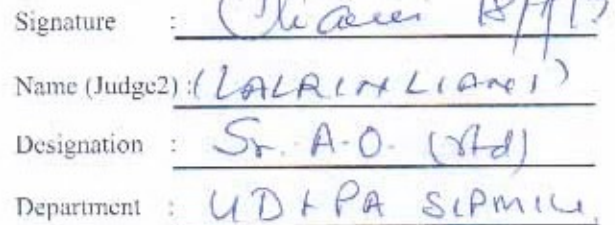 Signature : 18/7/17
Name (Judge2) : (LALRINLIANI)
Designation : Sr. A.O. (rtd)
Department : UD & PA SIPMIU